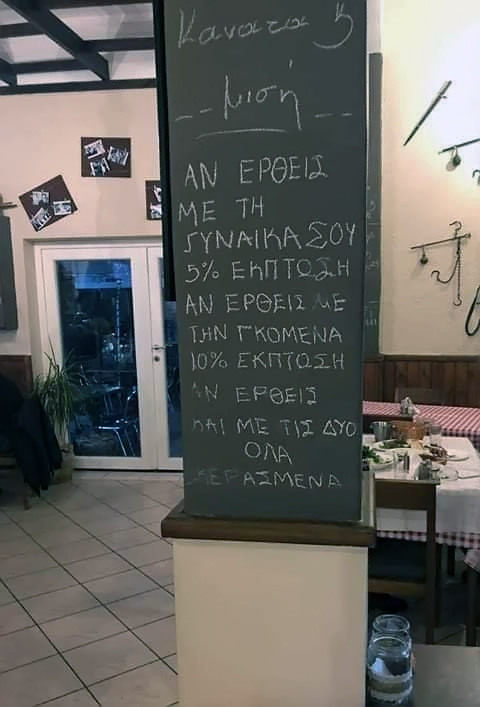 Κανατα 5
Μισή
ΑΝ ΕΡΘΕΙΣ
ΜΕ ΤΗ
ΓΥΝΑΙΚΑ ΣΟΥ
5% ΕΚΠΤΩΣΗ
ΑΝ ΕΡΘΕΙΣ ΜΕ
ΤΗΝ ΓΚΟΜΕΝΑ
10% ΕΚΠΤΩΣΗ
ΑΝ ΕΡΘΕΙΣ
ΚΑΙ ΜΕ ΤΙΣ ΔΥΟ
ΟΛΑ
ΚΕΡΑΣΜΕΝΑ